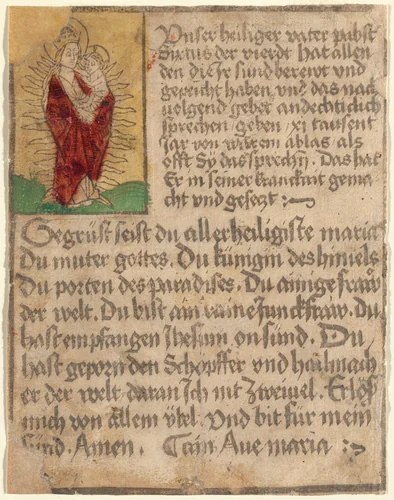 Unser heiliger vater pabst
Sixtus der vierdt hat allen
den die Jr sünd berewt vnd
gepeicht haben, vnd das nach
volgend gebet andechticlich
sprechen geben xj tausent
Jar von warem ablas als
offt Sy das sprechn. Das hat
Er in seiner kranckait gema
cht vnd gesetzt :~
Gegrüst seist du aller heiligiste maria
Du muter gottes. Du künigin des himels
Du porten des paradises. Du ainige fraw
der welt. Du bist ain raine Junckfraw. Du
hast empfangen Jhesum on sünd. Du
hast geporn den Schopffer vnd hailmach
er der welt daran Jch nit zweivel. Erlös
mich von allem vbel. Vnd bit für mein
sünd. Amen. Ain Ave maria :~